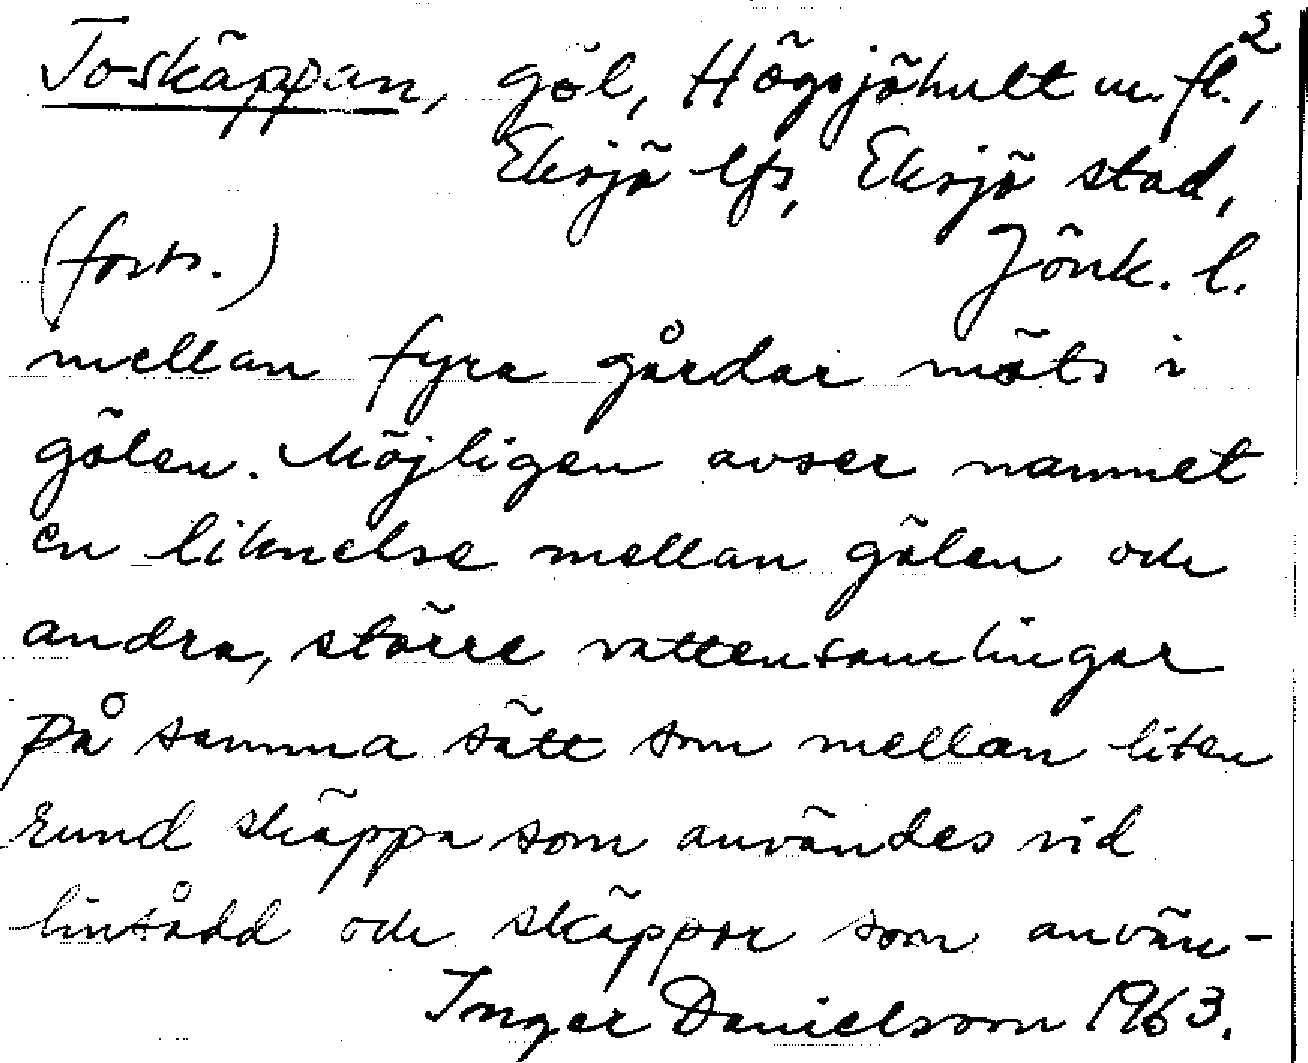 Toskäppan, göl, Högsjöhult m. fl., 2
Eksjö lfs, Eksjö stad,
(forts.) Jönk. l.
mellan fyra gårdar möts i
gölen. Möjligen avser namnet
en liknelse mellan gölen och
andra, större vattensamlingar
på samma sätt som mellan liten
rund skäppa som användes vid
linsådd och skäppor som använ-
Inger Danielsson 1963.